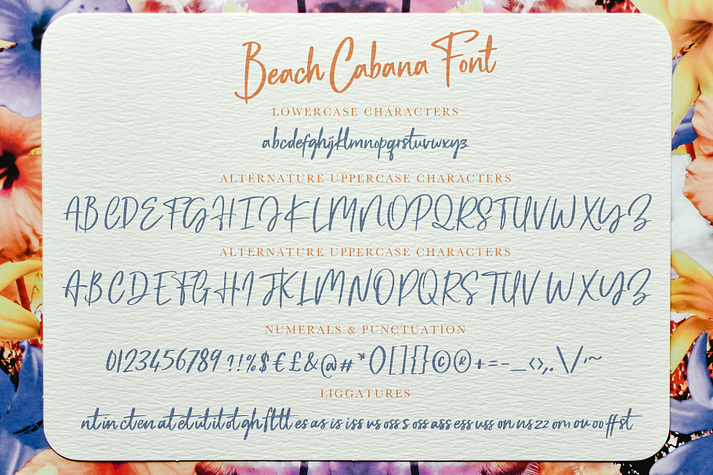 Beach Cabana Font
LOWERCASE CHARACTERS
abcdefghijklmnopqrstuvwxyz
ALTERNATURE UPPERCASE CHARACTERS
ABCDEFGHIJKLMNOPQRSTUVWXYZ
ALTERNATURE UPPERCASE CHARACTERS
ABCDEFGHIJKLMNOPQRSTUVWXYZ
NUMERALS & PUNCTUATION
0123456789 ?!%$€£&@#*()[]{}©®+=-_<>,.\/'~
LIGGATURES
nt in ct en at et ut it ot gh ft tt es as is iss us oss s oss ass ess uss on ns zz om ou oo ff st